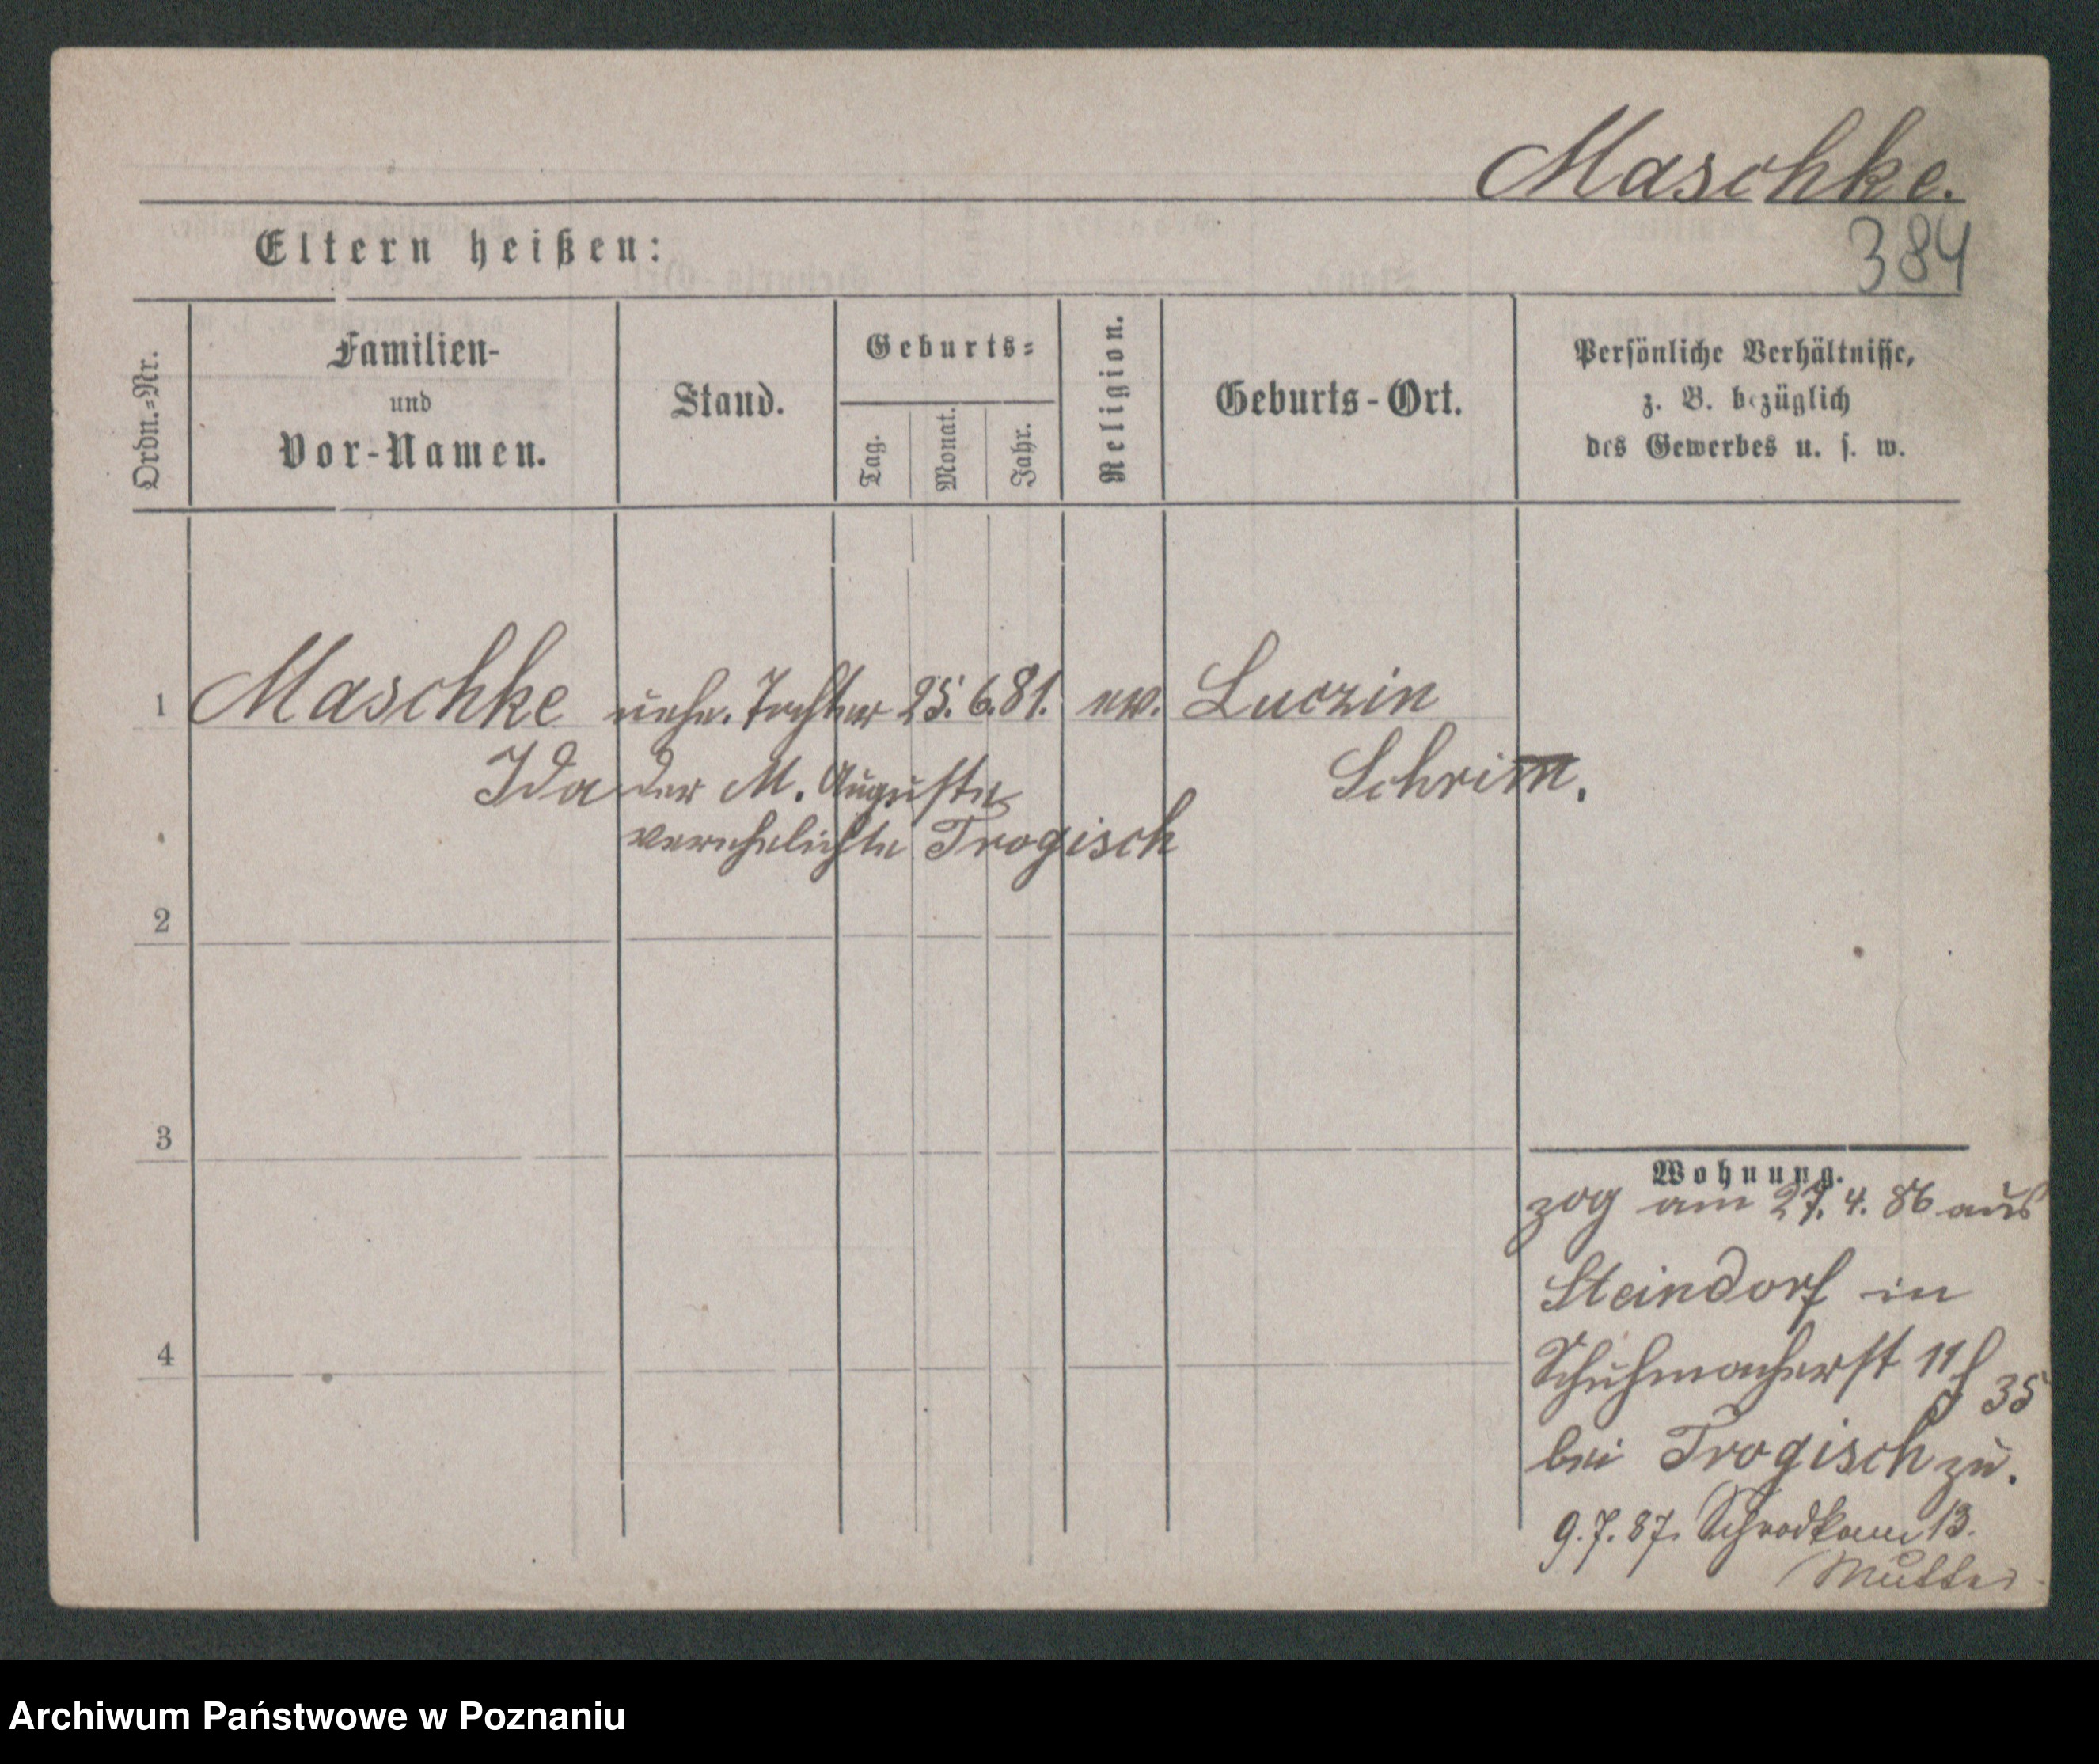 Maschke.
384
Eltern heißen:
Ordn.-Nr.
Familien-
und
Vor-Namen.
Stand.
Geburts-
Tag.
Monat.
Jahr.
Religion.
Geburts-Ort.
Persönliche Verhältnisse,
z. B. bezüglich
des Gewerbes u. s. w.
1 Maschke unehe. Tochter 25. 6. 81. ev. Luczin
Ida der M. Auguste Schrim.
verehelichte Trogisch
2
3
4
Wohnung.
zog am 27. 4. 86 aus
Steindorf in
Schuhmacherst 11
35
bei Trogisch zu.
9. 7. 87. Schrodkam 13.
Mutter
Archiwum Państwowe w Poznaniu